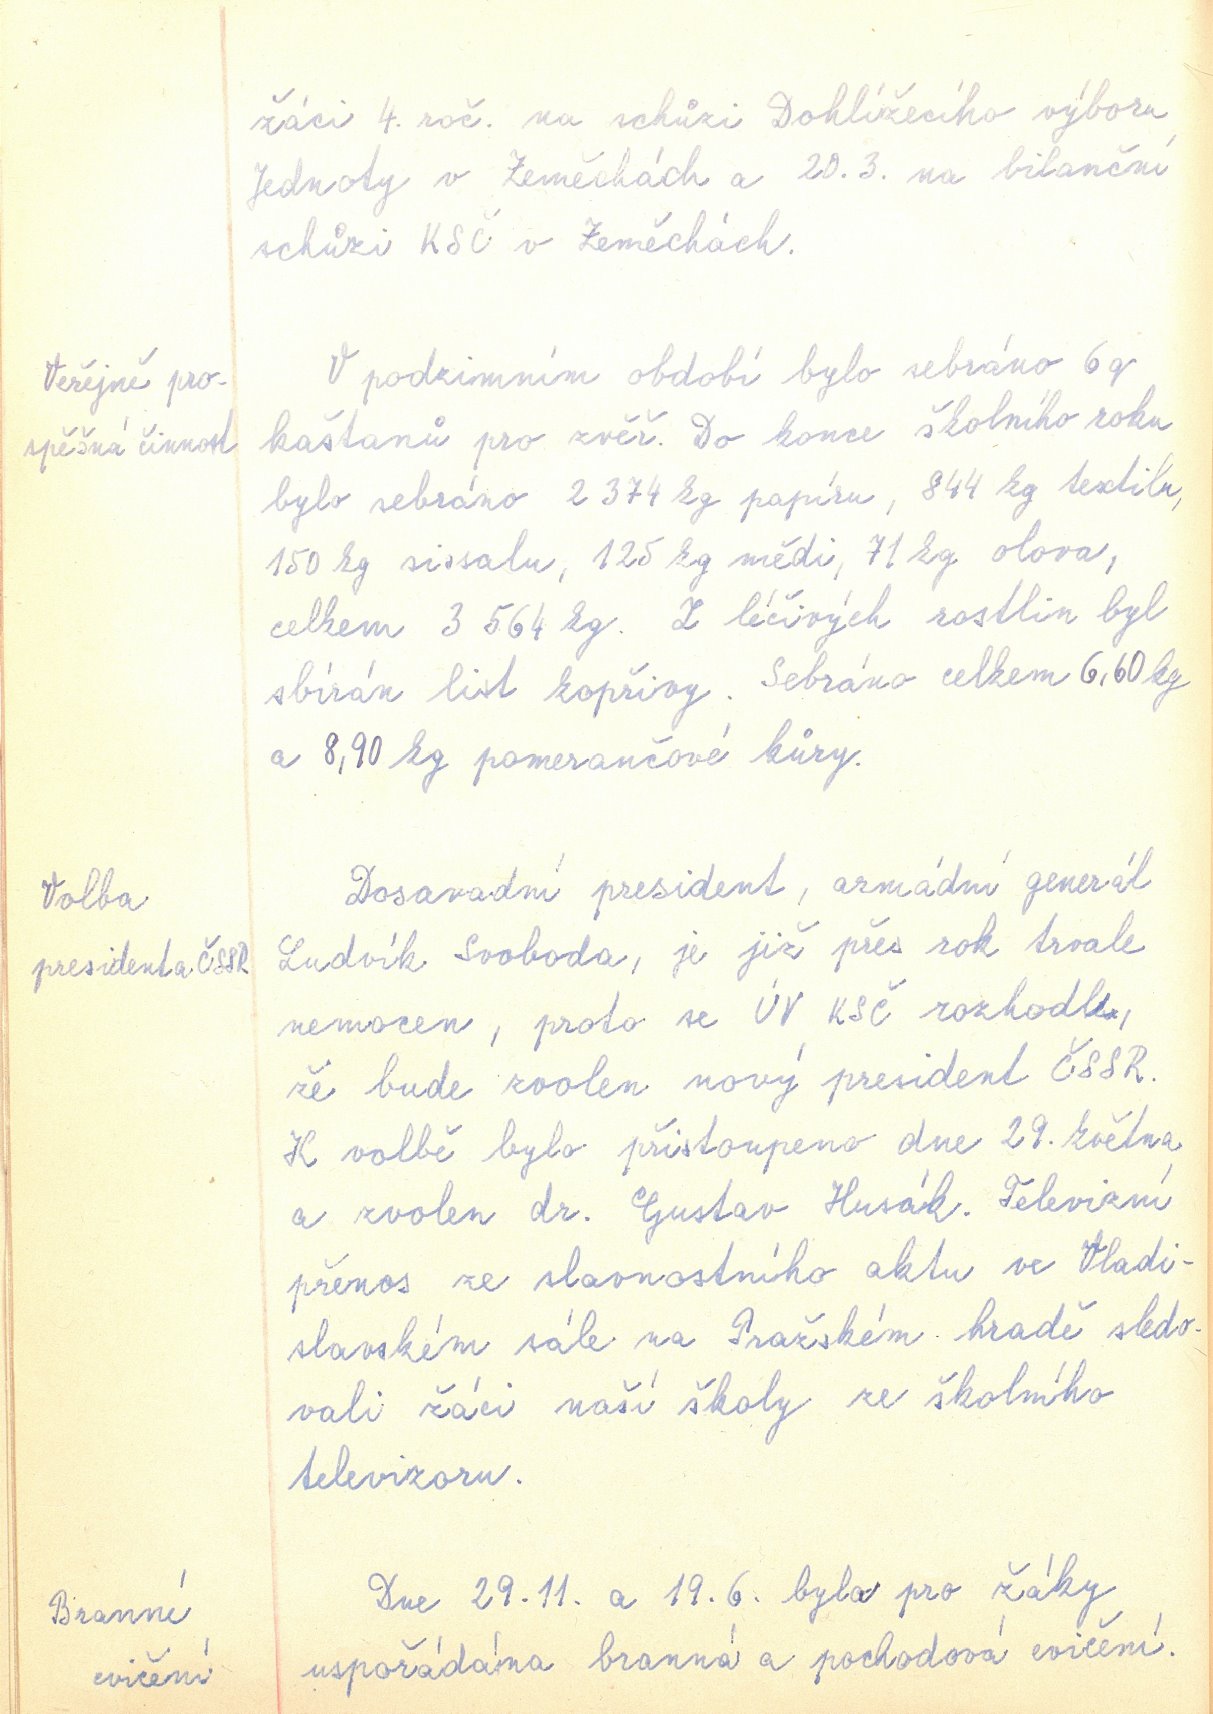 žáci 4. roč. na schůzi Dohlížecího výboru
Jednoty v Zeměchách a 20. 3. na bilanční
schůzi KSČ v Zeměchách.
Veřejně pro-
spěšná činnost
V podzimním období bylo sebráno 6 q
kaštanů pro zvěř. Do konce školního roku
bylo sebráno 2 374 kg papíru, 844 kg textilu,
150 kg sissalu, 125 kg mědi, 71 kg olova,
celkem 3 564 kg. Z léčivých rostlin byl
sbírán list kopřivy. Sebráno celkem 6,60 kg
a 8,90 kg pomerančové kůry.
Volba
presidenta ČSSR
Dosavadní president, armádní generál
Ludvík Svoboda, je již přes rok trvale
nemocen, proto se ÚV KSČ rozhodl,
že bude zvolen nový president ČSSR.
K volbě bylo přistoupeno dne 29. května
a zvolen dr. Gustav Husák. Televizní
přenos ze slavnostního aktu ve Vladi-
slavském sále na Pražském hradě sledo-
vali žáci naší školy ze školního
televizoru.
Branné
cvičení
Dne 29. 11. a 19. 6. byla pro žáky
uspořádána branná a pochodová cvičení.